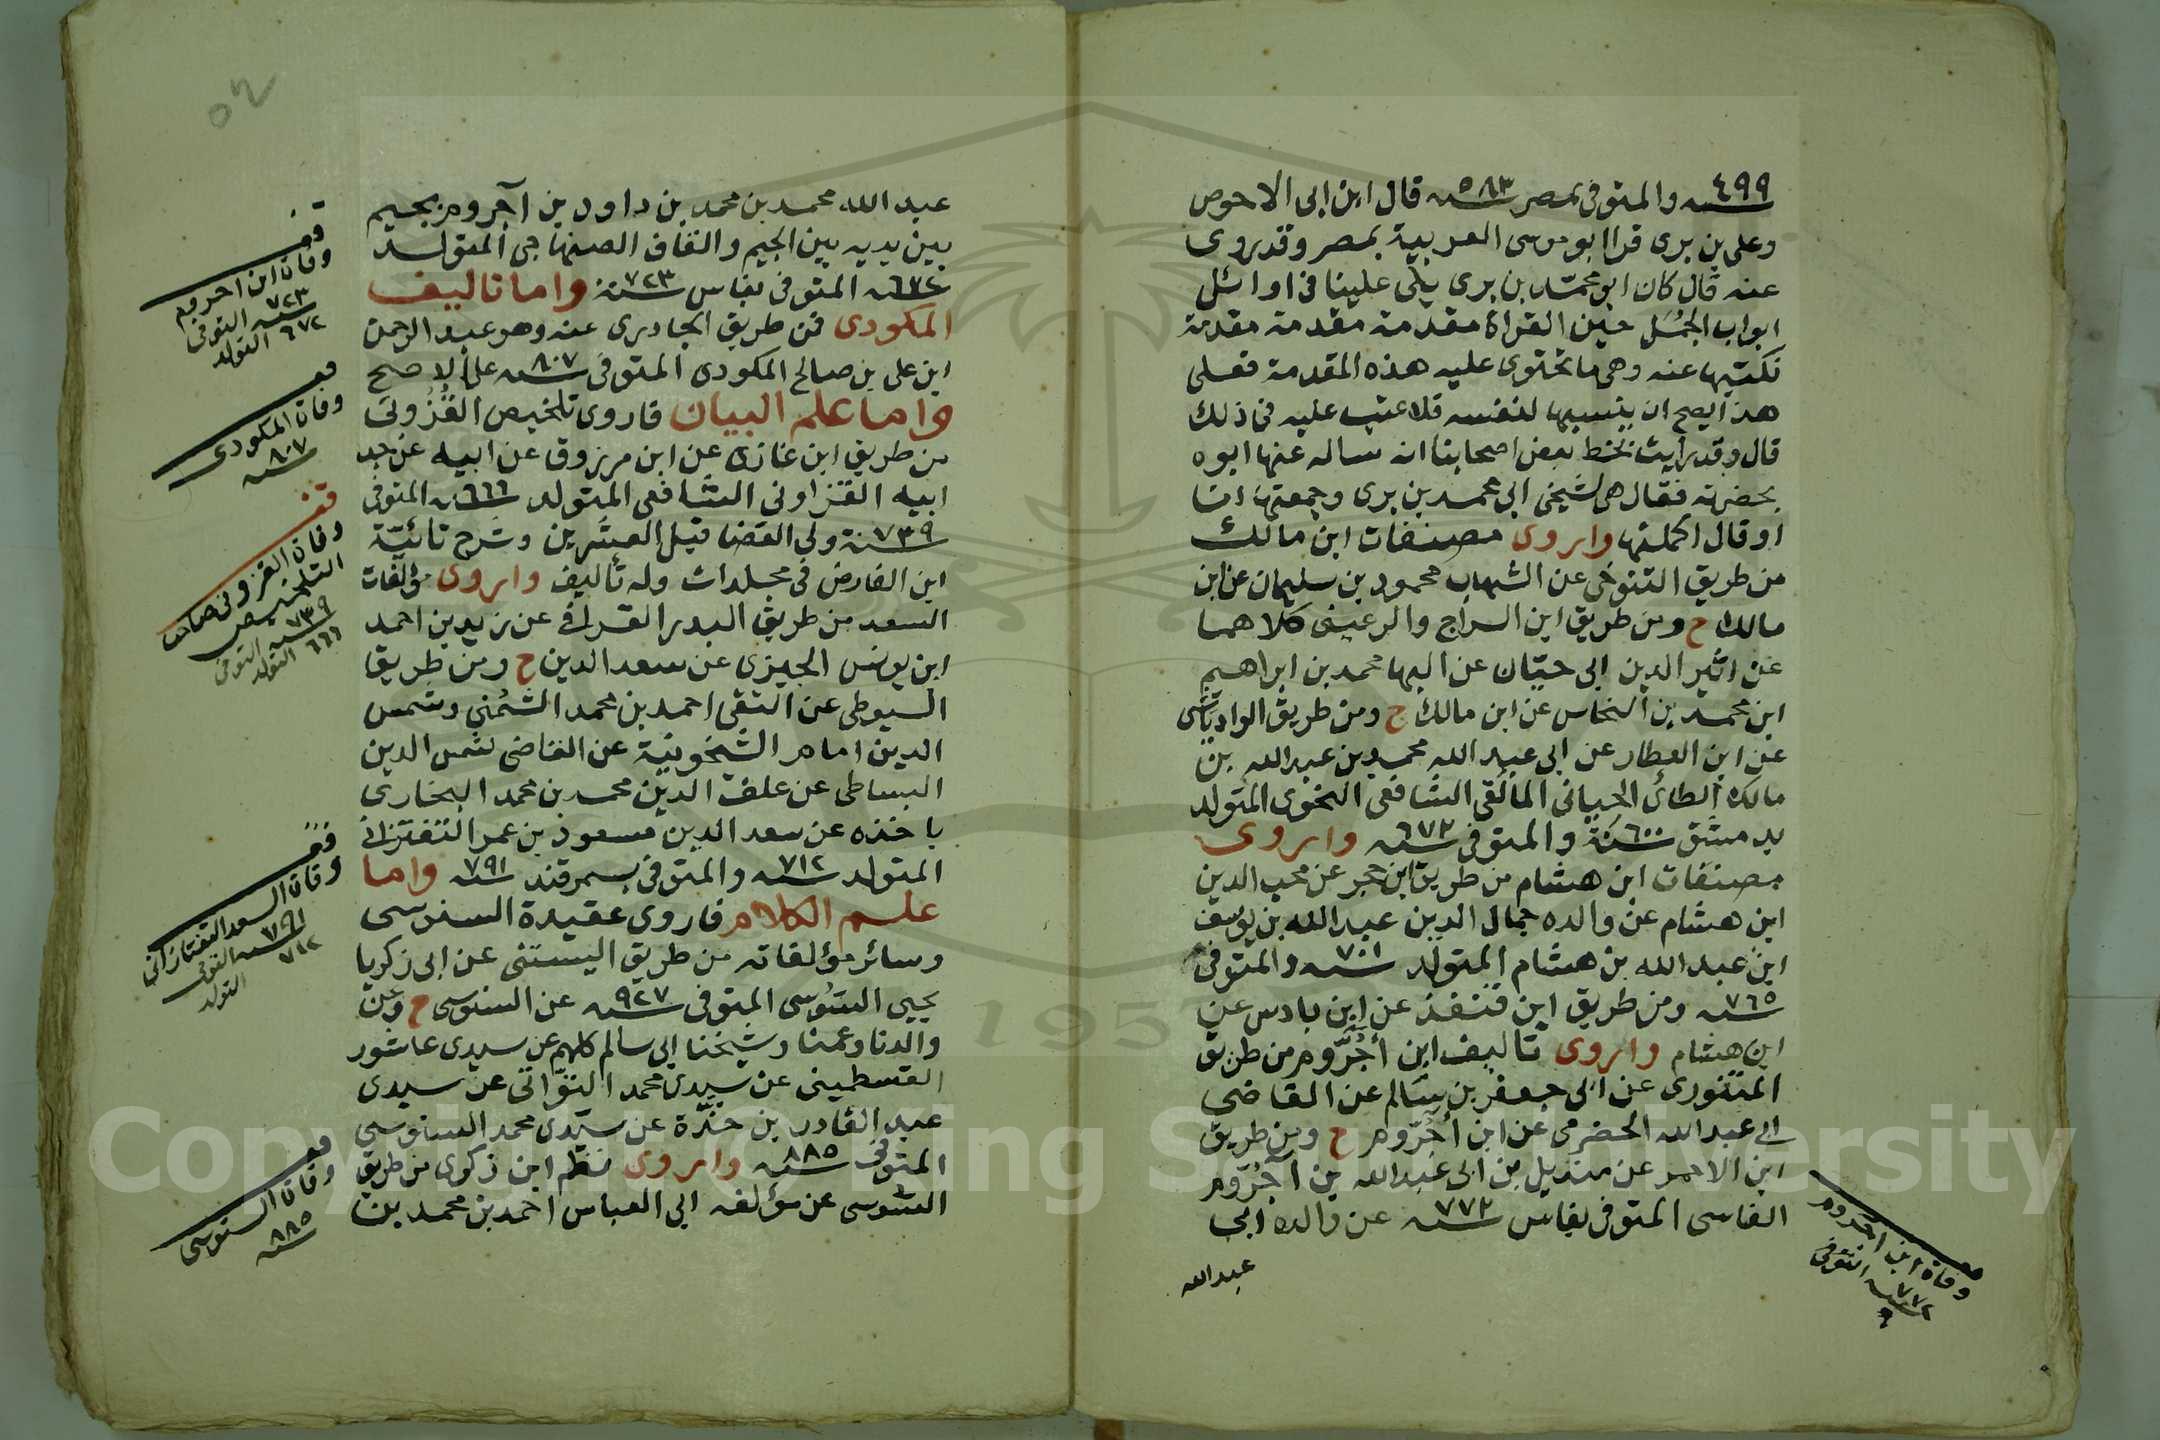 سنة ٤٩٩ والمتوفى بمصر سنة ٥٨٣ قال ابن ابى الاحوص
وعلى بن برى قرا ابو موسى العربية بمصر وقد روى
عنه قال كان ابو محمد بن برى يلقى علينا فى اوائل
ابواب الجُمَل حين القراة مقدمة مقدمة مقدمة
نكتبها عنه وهى ما تحتوى عليه هذه المقدمة فعلى
هذا يصح ان ينسبها لنفسه فلا عتب عليه فى ذلك
قال وقد رايت بخط بعض اصحابنا انه ساله عنها ابوه
بحضرته فقال هى لشيخى ابى محمد بن برى وجمعتها انا
او قال اكملتها واروى مصنفات ابن مالك
من طريق التنوخى عن الشهاب محمود بن سليمان عن ابن
مالك ح ومن طريق ابن السراج والرعينى كلاهما
عن اثير الدين ابى حيّان عن البها محمد بن ابراهيم
ابن محمد بن النحاس عن ابن مالك ح ومن طريق الوادياشى
عن ابن العطار عن ابى عبد الله محمد بن عبد الله بن
مالك الطائى الجيانى المالقى الشافعى النحوى المتولد
بدمشق سنة ٦٠٠ والمتوفى سنة ٦٧٢ واروى
مصنفات ابن هشام من طريق ابن حجر عن محب الدين
ابن هشام عن والده جمال الدين عبد الله بن يوسف
ابن عبد الله بن هشام المتولد سنة ٧٠١ والمتوفى
سنة ٧٦٥ ومن طريق ابن قنفذ عن ابن باديس عن
ابن هشام واروى تاليف ابن أجُرُّوم من طريق
المنتورى عن ابى جعفر بن سالم عن القاضى
ابى عبد الله الحضرمى عن ابن أجُرّوم ح ومن طريق
ابن الاحمر عن منديل بن ابى عبد الله بن آجُرّوم
الفاسى المتوفى بفاس سنة ٧٧٢ عن والده ابى
عبد الله
وفاة ابن اجروم
سنة ٧٧٢ التوفى
عبد الله محمد بن محمد بن داود بن آجروم بجيم
بين يديه بين الجيم والقاف الصنهاجى المتولد
سنة ٦٧٢ المتوفى بفاس سنة ٧٢٣ واما تاليف
المكودى فمن طريق الجاديرى عنه وهو عبد الرحمن
ابن على بن صالح المكودى المتوفى سنة ٨٠٧ على الاصح
واما علم البيان فاروى تلخيص القزونى
من طريق ابن غازى عن ابن مرزوق عن ابيه عن جد
ابيه القزاونى الشافعى المتولد سنة ٦٦٦ المتوفى
سنة ٧٣٩ ولى القضا قبل العشرين وشرح تائيّة
ابن الفارض فى مجلدات وله تاليف واروى مؤلفات
السعد من طريق البدر القرافى عن زيد بن احمد
ابن يونس الجيزى عن سعد الدين ح ومن طريق
السيوطى عن التقى احمد بن محمد الشُمُنى وشمس
الدين امام الشيخونية عن القاضى شمس الدين
البساطى عن علف الدين محمد بن محمد البخارى
باخذه عن سعد الدين مسعود بن عمر التفتزانى
المتولد سنة ٧١٢ والمتوفى بسمرقند سنة ٧٩١ واما
علم الكلام فاروى عقيدة السنوسى
وسائر مؤلفاته من طريق اليستنى عن ابى زكريا
يحيى السوسى المتوفى سنة ٩٢٧ عن السنوسى ح وعن
والدنا وعمنا وشيخنا ابى سالم كلهم عن سيدى عاشور
القسطينى عن سيدى محمد التوّاتى عن سيدى
عبد القادر بن خدّة عن سيّدى محمد السنوسى
المتوفى سنة ٨٨٥ واروى نظم ابن زكرى من طريق
السّوسى عن مؤلفه ابى العباس احمد بن محمد بن
قف
وفاة ابن اجروم
سنة ٧٢٣ التوفى
٦٧٢ التولد
وفاة المكودى
سنة ٨٠٧
قف
وفاة القزونى صاحب
التلخيص
سنة ٧٣٩ التوفى
٦٦٦ التولد
قف
وفاة السعد التفتازانى
سنة ٧٩١ التوفى
٧١٢
التولد
وفاة السنوسى
سنة ٨٨٥
٥٢
1957
Copyright © King Saud University